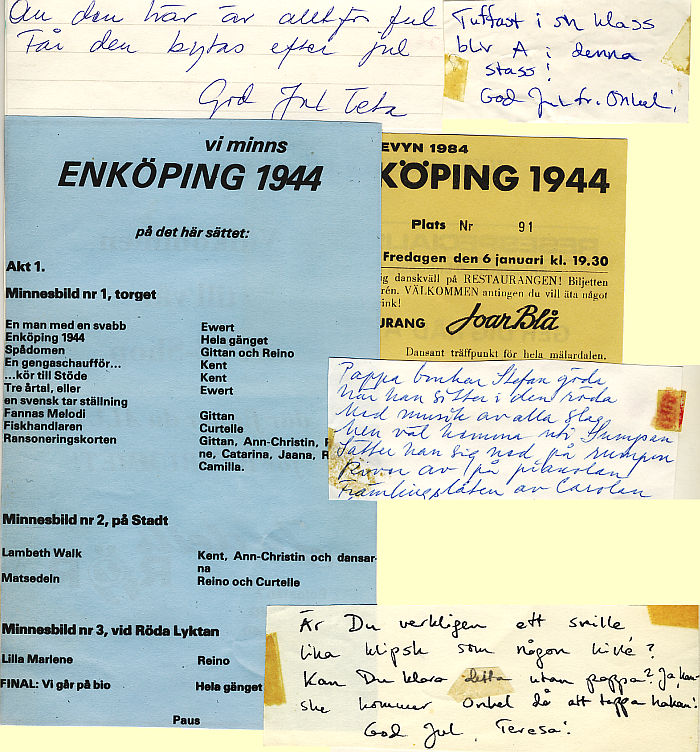 An den här är allt för ful
Får den bytas efter jul
God Jul Teta
Tuffast i sin klass
blir A i denna
stass!
God Jul fr. Onkel!
vi minns
ENKÖPING 1944
på det här sättet:
Akt 1.
Minnesbild nr 1, torget
En man med en svabb Ewert
Enköping 1944 Hela gänget
Spådomen Gittan och Reino
En gengaschaufför... Kent
...kör till Stöde Kent
Tre årtal, eller Ewert
en svensk tar ställning
Fannas Melodi Gittan
Fiskhandlaren Curtelle
Ransoneringskorten Gittan, Ann-Christin, R
ne, Catarina, Jaana, R
Camilla.
Minnesbild nr 2, på Stadt
Lambeth Walk Kent, Ann-Christin och dansar-
na
Matsedeln Reino och Curtelle
Minnesbild nr 3, vid Röda Lyktan
Lilla Marlene Reino
FINAL: Vi går på bio Hela gänget
Paus
EVYN 1984
KÖPING 1944
Plats Nr 91
Fredagen den 6 januari kl. 19.30
ig danskväll på RESTAURANGEN! Biljetten
rén. VÄLKOMMEN antingen du vill äta något
ink!
URANG JoarBlå
Dansant träffpunkt för hela mälardalen.
Pappa Stefan göda
när han sitter i den röda
Med musik av alla slag
Men väl komma uti Gumpan
Sätter han sig ned på rumpan
River av på pianolan
Främlingslåten av Carolan
Är Du verkligen ett snille
lika klipsk som någon kivé?
Kan Du klara detta utan pappa? Ja, kan-
ske kommer Onkel då att tappa hakan!
God Jul, Teresa!